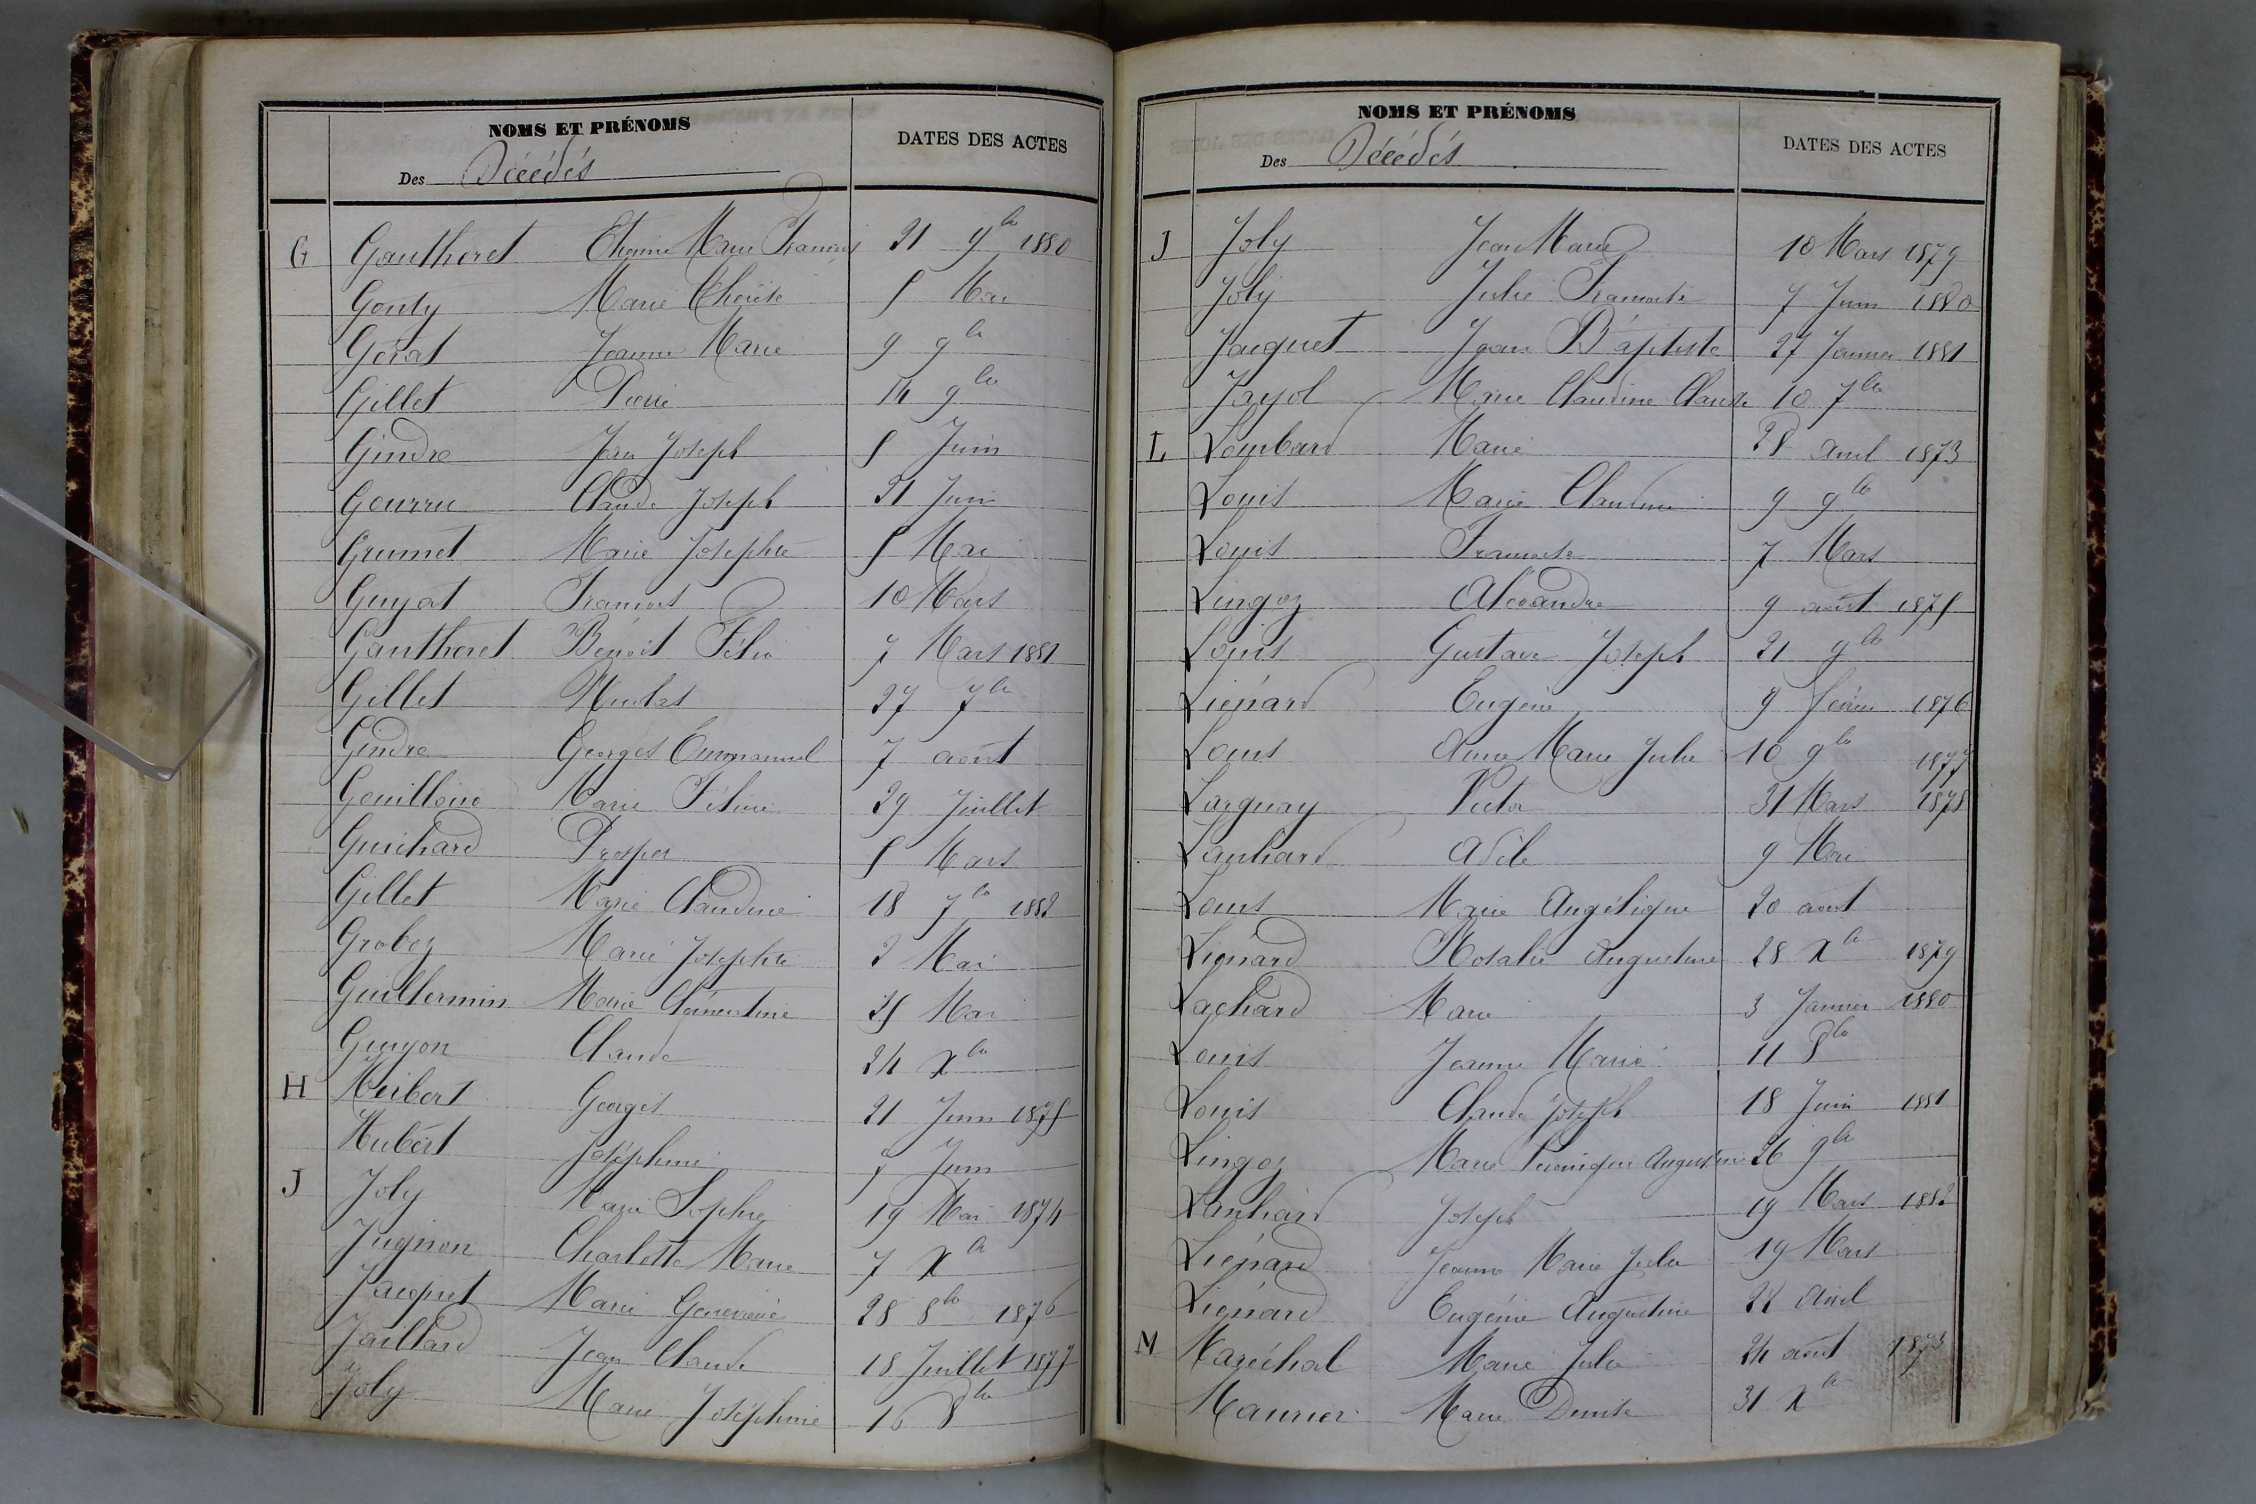 NOMS ET PRÉNOMS
DATES DES ACTES
Des Décédés
G Gautheret Etienne Marie François 21 9bre 1880
Gouty Marie Thérèse 5 Mai
Gérat Jeanne Marie 9 9bre
Gillet Pierre 14 9bre
Gindre Jean Joseph 5 Juin
Gourru Claude Joseph 21 Juin
Grumet Marie Josephte 5 Mai
Guyat François 10 Mars
Gautheret Benoit Félix 7 Mars 1881
Gillet Nicolas 27 7bre
Gindre Georges Emmanuel 7 août
Gouilloux Marie 29 Juillet
Guichard Prosper 5 Mars
Gillet Marie Claudine 18 7bre 1882
Groboz Marie Josephte 2 Mai
Guillermin Marie Clémentine 25 Mai
Guyon Claude 24 Xbre
H Heibert Georges 21 Juin 1875
Hubert Joséphine 7 Juin
J Joly Marie Sophie 19 Mai 1874
Jugnon Charlotte Marie 7 Xbre
Jacquet Marie Geneviève 28 8bre 1876
Jaillard Jean Claude 18 Juillet 1877
Joly Marie Joséphine 16 8bre
NOMS ET PRÉNOMS
DATES DES ACTES
Des Décédés
J Joly Jean Marie 10 Mars 1879
Joly Julie Françoise 7 Juin 1880
Jacquet Jean Baptiste 27 Janvier 1881
Jayol Marie Claudine Claude 10 7bre
L Lombard Marie 28 avril 1873
Louis Marie Claudine 9 9bre
Louis Françoise 7 Mars
Lingoz Alexandre 9 août 1875
Louis Gustave Joseph 21 9bre
Liénard Eugène 9 février 1876
Louis Anne Marie Julie 10 9bre 1877
Larguay Victor 31 Mars 1878
Lanhard Adèle 9 Mai
Louis Marie Angélique 20 août
Liénard Rosalie Augustine 28 Xbre 1879
Lachard Marie 3 Janvier 1880
Louis Jeanne Marie 11 8bre
Louis Claude Joseph 18 Juin 1881
Lingoz Marie Véronique Augustine 26 9bre
Lanhard Joseph 19 Mars 1882
Liénard Jeanne Marie Julie 19 Mars
Liénard Eugénie Augustine 22 Avril
M Maréchal Marie Julie 24 août 1873
Maurier Marie Denise 31 Xbre